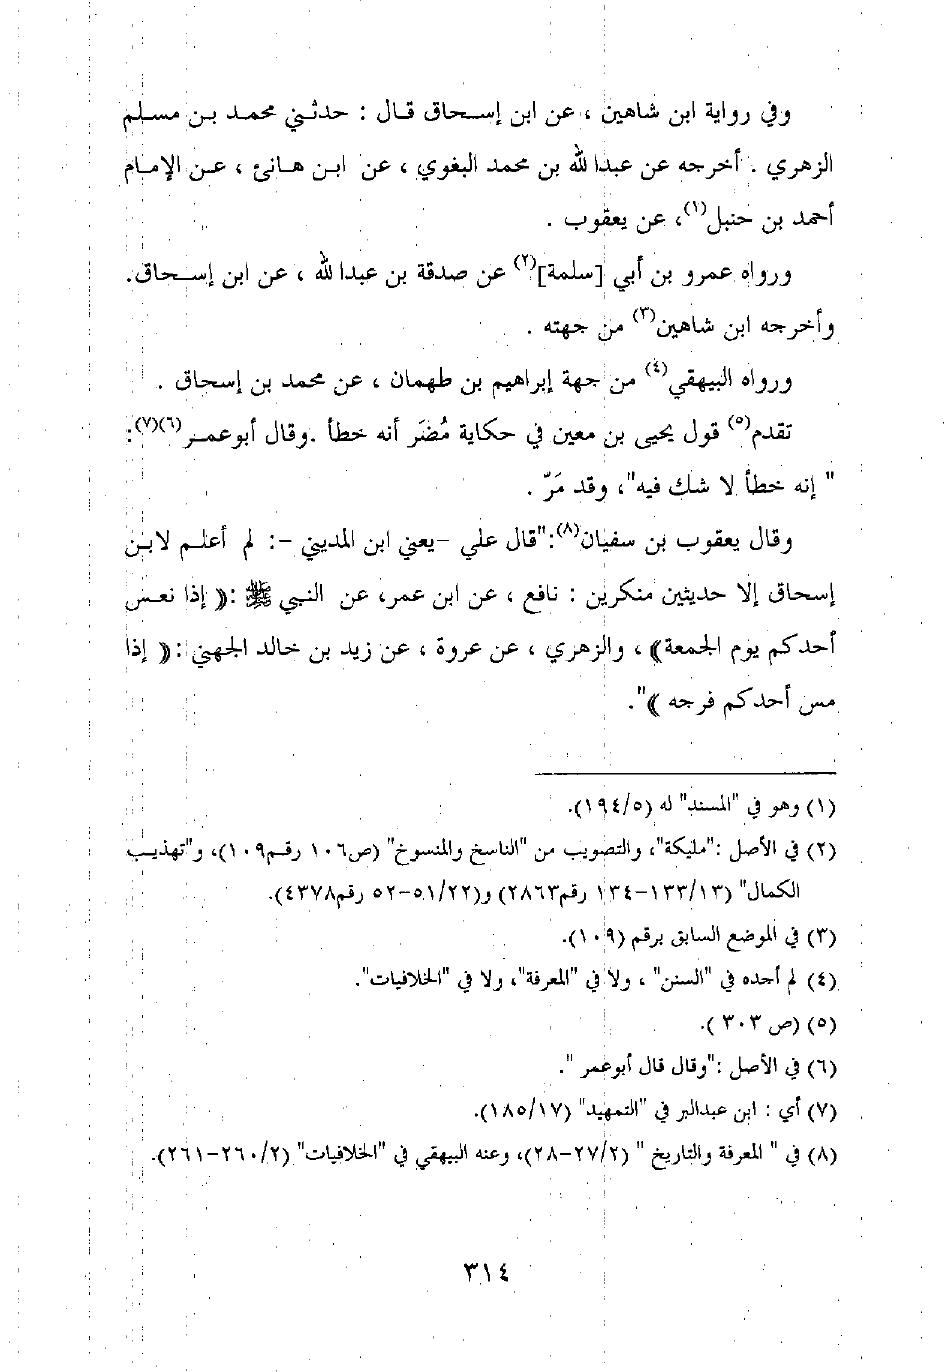 وفي رواية ابن شاهين ، عن ابن إسـحاق قـال : حدثـني محمـد بـن مسـلم
الزهري . أخرجه عن عبدالله بن محمد البغوي ، عن ابـن هـانئ ، عـن الإمـام
أحمد بن حنبل(١)، عن يعقوب .
ورواه عمرو بن أبي [سلمة](٢) عن صدقة بن عبدالله ، عن ابن إسـحاق.
وأخرجه ابن شاهين(٣) من جهته .
ورواه البيهقي(٤) من جهة إبراهيم بن طهمان ، عن محمد بن إسحاق .
تقدم(٥) قول يحيى بن معين في حكاية مُضَر أنه خطأ .وقال أبوعمـر(٦)(٧):
" إنه خطأ لا شك فيه"، وقد مَرّ .
وقال يعقوب بن سفيان(٨):"قال علي -يعني ابن المديني -: لم أعلـم لابـن
إسحاق إلا حديثين منكرين : نافع ، عن ابن عمر، عن النبي ﷺ :﴿ إذا نعس
أحدكم يوم الجمعة﴾ ، والزهري ، عن عروة ، عن زيد بن خالد الجهني :﴿ إذا
مس أحدكم فرجه ﴾".
(١) وهو في "المسند" له (١٩٤/٥).
(٢) في الأصل :"مليكة"، والتصويب من "الناسخ والمنسوخ" (ص١٠٦ رقـم١٠٩)، و"تهذيـب
الكمال" (١٣٣/١٣-١٣٤ رقم٢٨٦٣) و(٥١/٢٢-٥٢ رقم٤٣٧٨).
(٣) في الموضع السابق برقم (١٠٩).
(٤) لم أجده في "السنن" ، ولا في "المعرفة"، ولا في "الخلافيات".
(٥) (ص ٣٠٣ ).
(٦) في الأصل :"وقال قال أبوعمر ".
(٧) أي : ابن عبدالبر في "التمهيد" (١٨٥/١٧).
(٨) في " المعرفة والتاريخ " (٢٧/٢-٢٨)، وعنه البيهقي في "الخلافيات" (٢٦٠/٢-٢٦١).
٣١٤